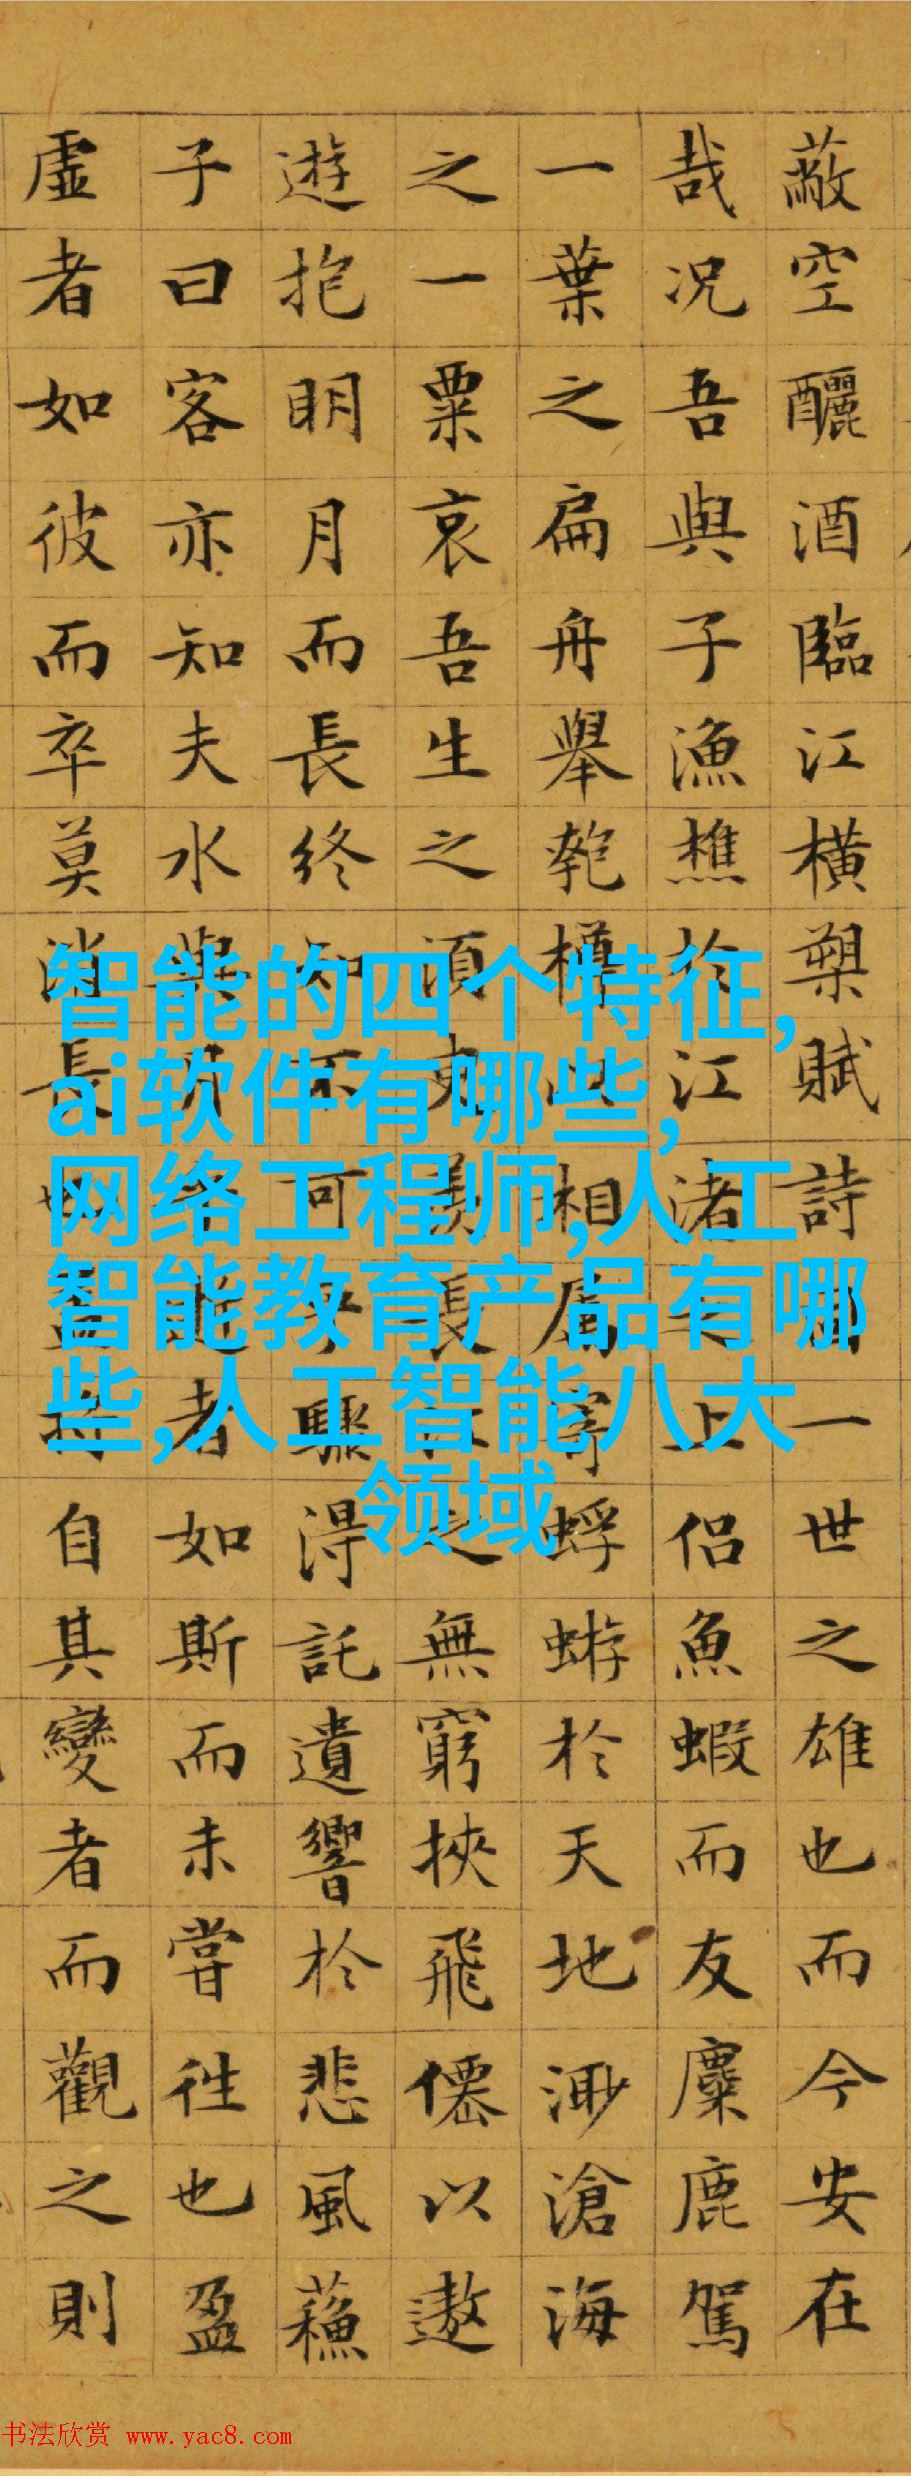 蔽空釃酒臨江橫槊賦詩固一世之雄也而今安在
哉况吾與子漁樵於江渚之上侶魚蝦而友麋鹿駕
一葉之扁舟舉匏樽以相屬寄蜉蝣於天地渺滄海
之一粟哀吾生之須臾羨長江之無窮挾飛僊以遨
遊抱明月而長終知不可乎驟得託遺響於悲風蘇
子曰客亦知夫水與月乎逝者如斯而未嘗往也盈
虛者如彼而卒莫消長也蓋將自其變者而觀之則
智能的四个特征,
ai软件有哪些,
网络工程师,人工
智能教育产品有哪
些,人工智能八大
领域
书法欣赏 www.yac8.com